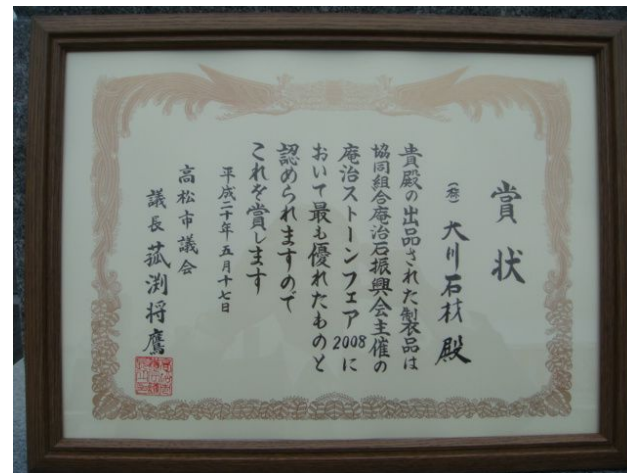 賞状
大川石材殿
貴殿の出品された製品は
協同組合庵治石振興会主催の
庵治ストーンフェア2008に
おいて最も優れたものと
認められますので
これを賞します
平成二十年五月十七日
高松市議会
議長 菰渕将鷹